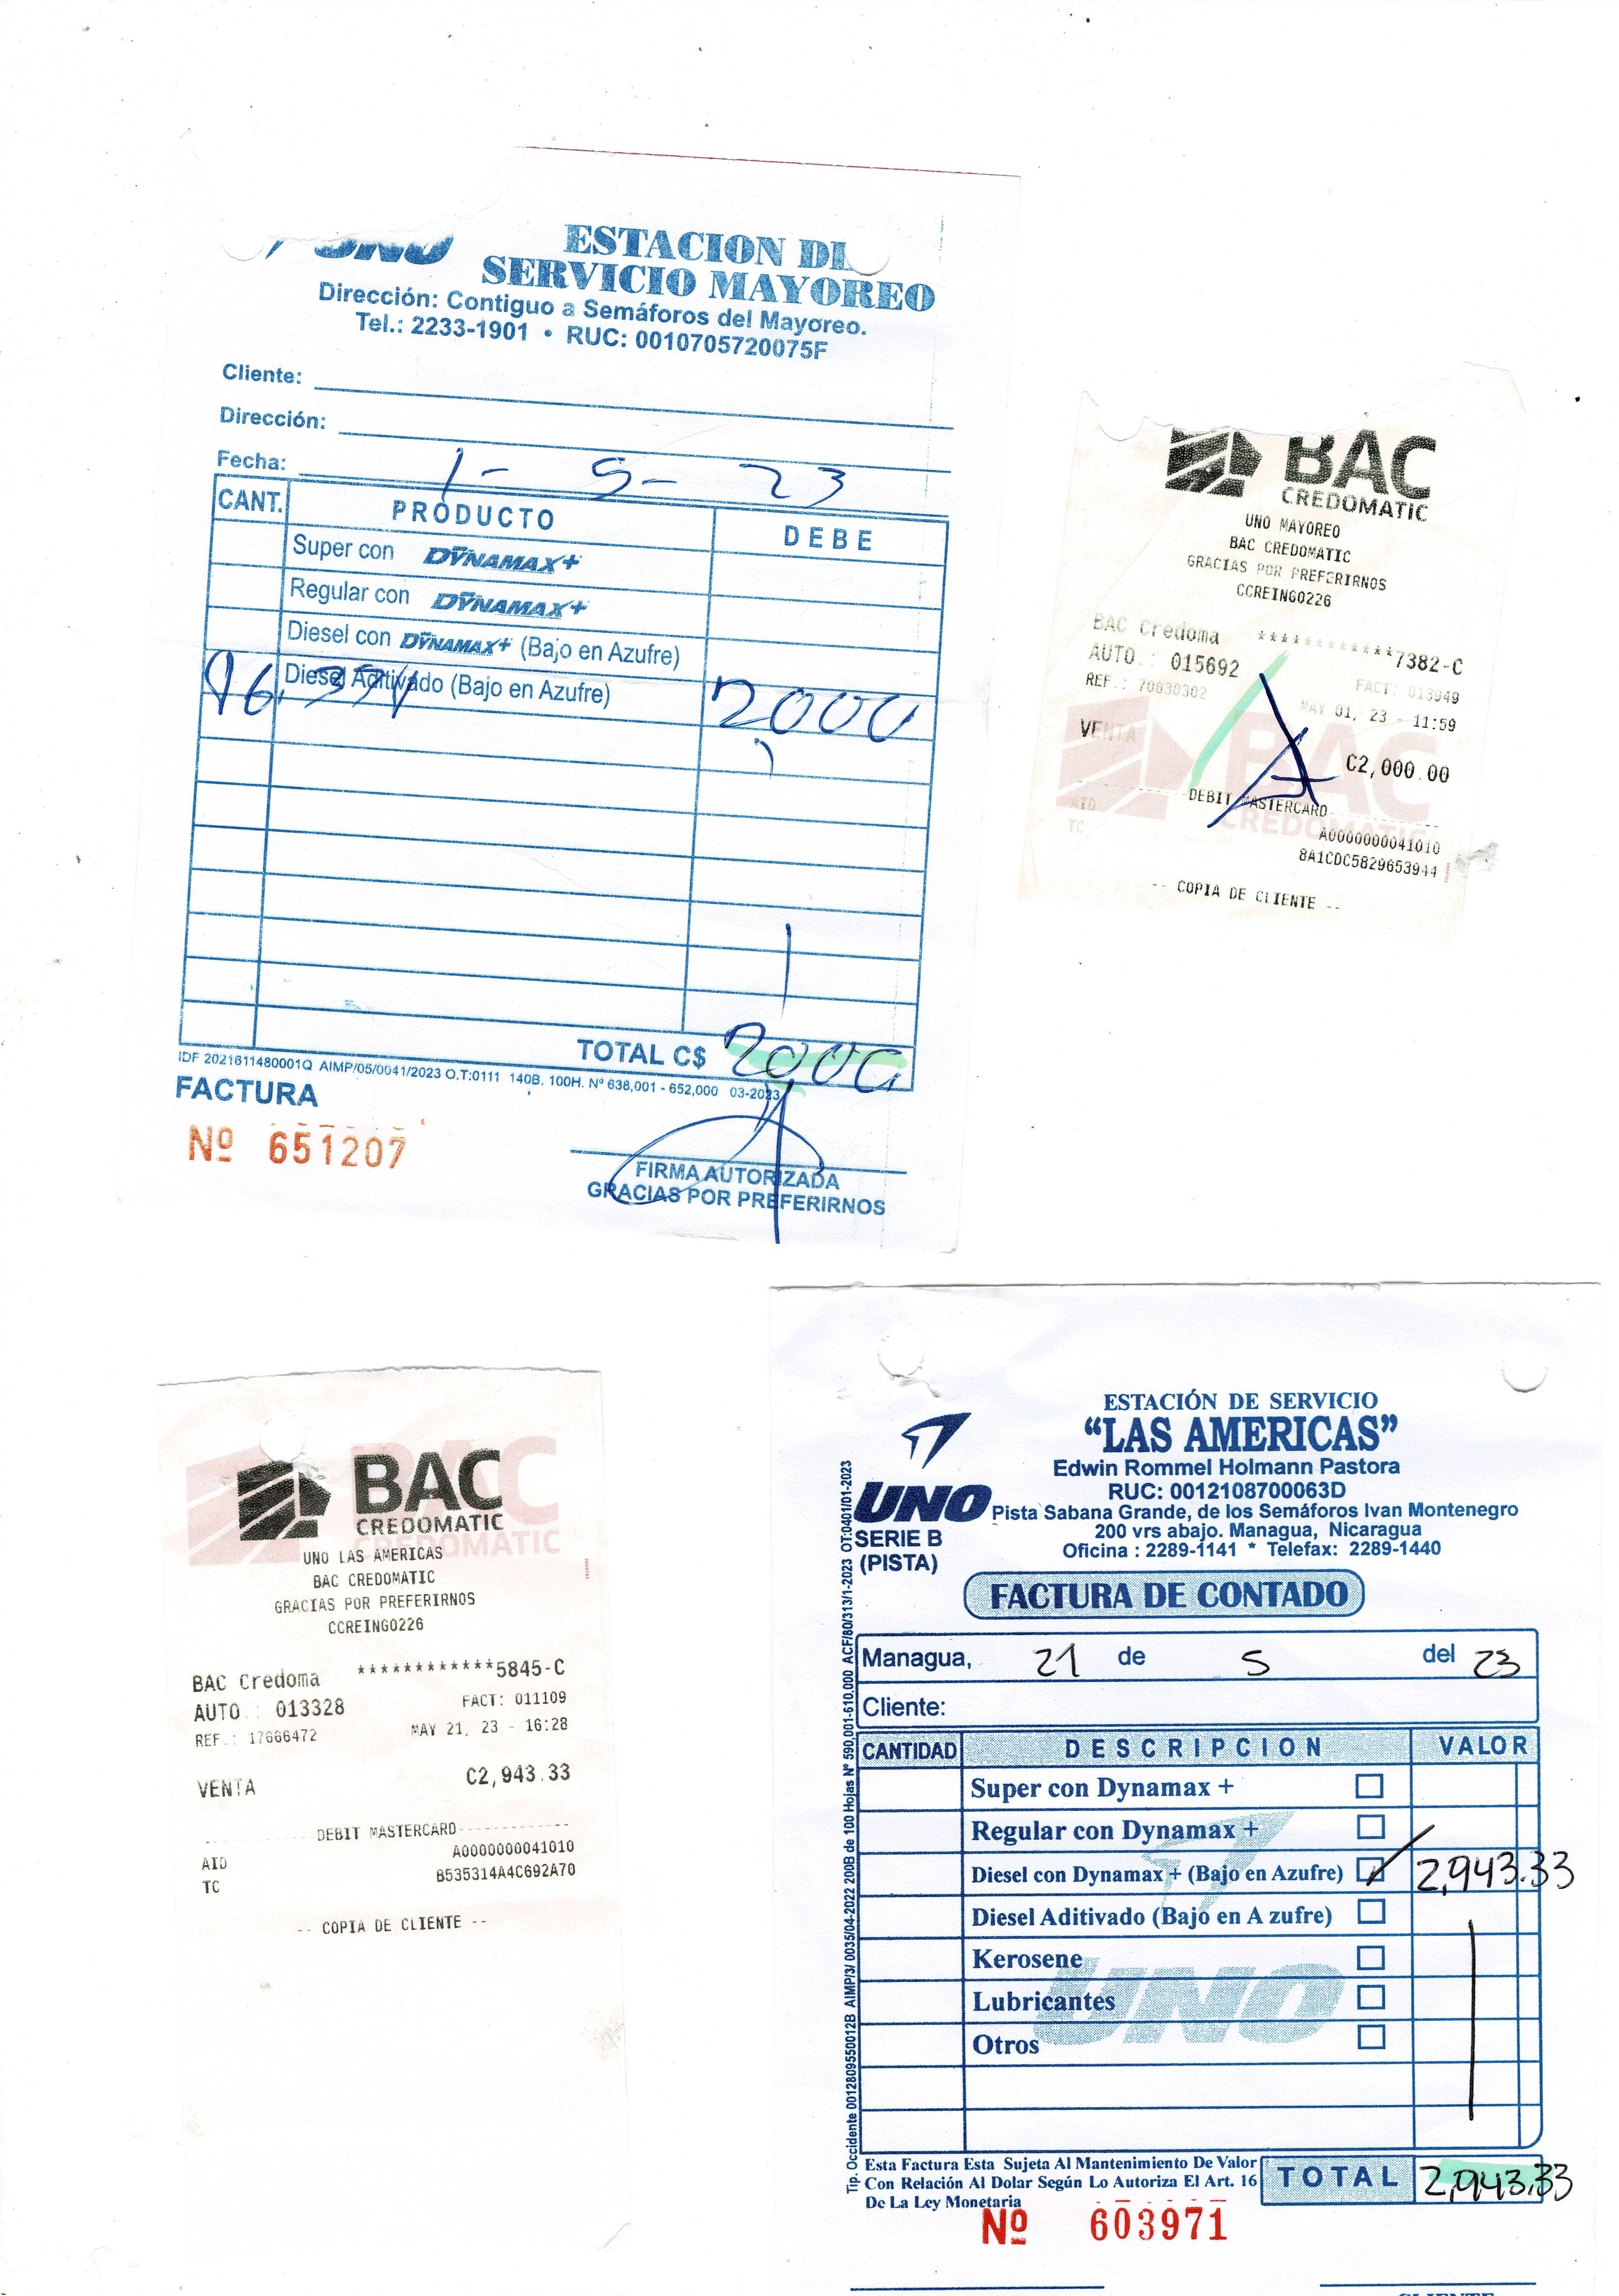 UNO
ESTACION DE
SERVICIO MAYOREO
Dirección: Contiguo a Semáforos del Mayoreo.
Tel.: 2233-1901 • RUC: 0010705720075F
Cliente:
Dirección:
Fecha: 1- 5- 23
CANT. PRODUCTO DEBE
Super con DYNAMAX+
Regular con DYNAMAX+
Diesel con DYNAMAX+ (Bajo en Azufre)
Diesel Aditivado (Bajo en Azufre) 2000
TOTAL C$ 2000
IDF 2021611480001Q AIMP/05/0041/2023 O.T:0111 140B. 100H. Nº 638,001 - 652,000 03-2023
FACTURA
Nº 651207
FIRMA AUTORIZADA
GRACIAS POR PREFERIRNOS
BAC
CREDOMATIC
UNO MAYOREO
BAC CREDOMATIC
GRACIAS POR PREFERIRNOS
CCREING0226
BAC Credoma ************7382-C
AUTO.: 015692 FACT: 013949
REF.: 70030302 MAY 01, 23 - 11:59
VENTA C2,000.00
DEBIT MASTERCARD
AID A0000000041010
TC 8A1CDC5829653944
-- COPIA DE CLIENTE --
BAC
CREDOMATIC
UNO LAS AMERICAS
BAC CREDOMATIC
GRACIAS POR PREFERIRNOS
CCREING0226
BAC Credoma ************5845-C
AUTO.: 013328 FACT: 011109
REF.: 17666472 MAY 21, 23 - 16:28
VENTA C2,943.33
DEBIT MASTERCARD
AID A0000000041010
TC B535314A4C692A70
-- COPIA DE CLIENTE --
ESTACIÓN DE SERVICIO
“LAS AMERICAS”
Edwin Rommel Holmann Pastora
RUC: 0012108700063D
UNO
Pista Sabana Grande, de los Semáforos Ivan Montenegro
SERIE B
200 vrs abajo. Managua, Nicaragua
(PISTA)
Oficina : 2289-1141 * Telefax: 2289-1440
FACTURA DE CONTADO
Managua, 21 de 5 del 23
Cliente:
CANTIDAD DESCRIPCION VALOR
Super con Dynamax +
Regular con Dynamax +
Diesel con Dynamax + (Bajo en Azufre) 2,943.33
Diesel Aditivado (Bajo en A zufre)
Kerosene
Lubricantes
Otros
Esta Factura Esta Sujeta Al Mantenimiento De Valor
Con Relación Al Dolar Según Lo Autoriza El Art. 16
De La Ley Monetaria
TOTAL 2,943.33
Nº 603971
Tip. Occidente 0012809550012B AIMP/3/ 0035/04-2022 200B de 100 Hojas Nº 590,001-610,000 ACF/80/313/1-2023 OT:0401/01-2023